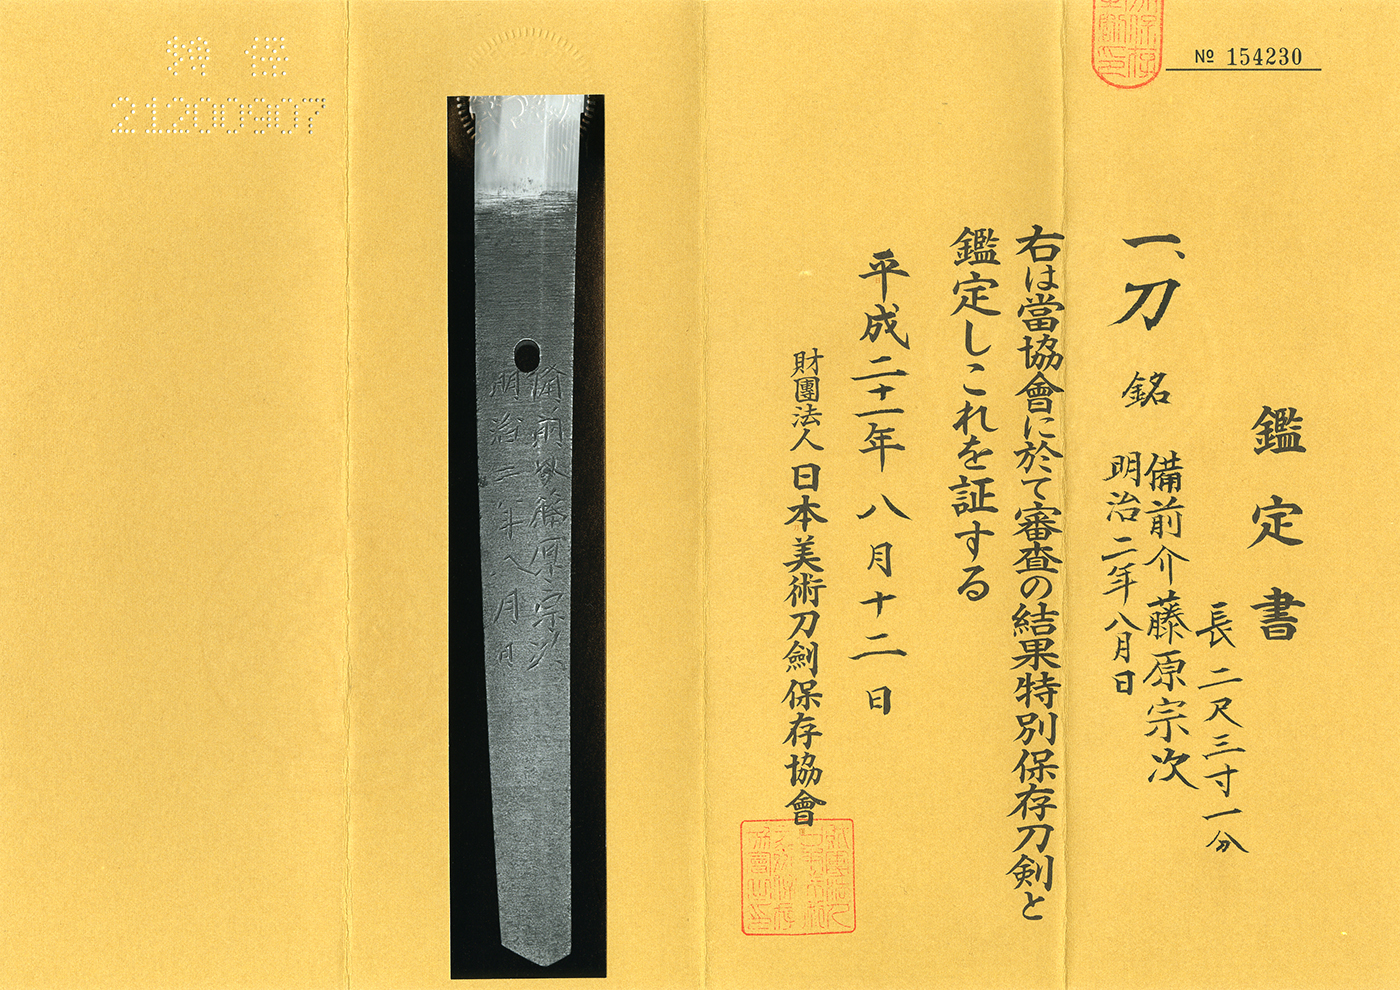 № 154230
鑑定書
一、刀 銘 備前介藤原宗次
明治二年八月日
長 二尺三寸一分
右は當協會に於て審査の結果特別保存刀剣と
鑑定しこれを証する
平成二十一年 八月十二日
財團法人 日本美術刀劍保存協會
備前介藤原宗次
明治二年八月日
特保
21200907